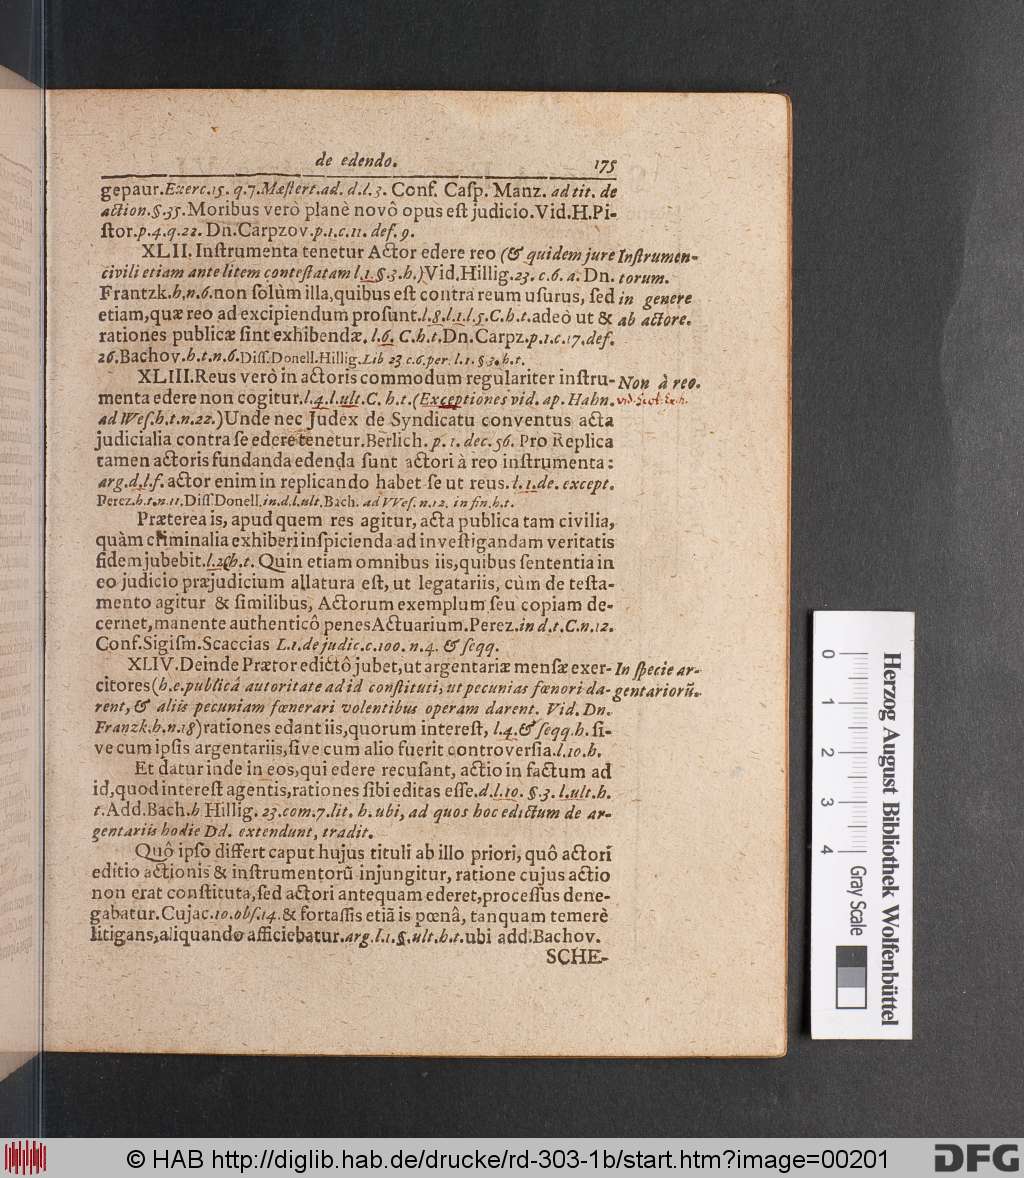 de edendo.
175
gepaur.Exerc.15. q.7.Mæstert.ad. d.l.3. Conf. Casp. Manz. ad tit. de
action.§.35.Moribus verò planè novô opus est judicio.Vid.H.Pi-
stor.p.4.q.22. Dn.Carpzov.p.1.c.11. def. 9.
XLII. Instrumenta tenetur Actor edere reo (& quidem jure
civili etiam ante litem contestatam l.1.§.3.h.)Vid.Hillig.23. c.6. a. Dn.
Frantzk.h.n.6.non solùm illa,quibus est contra reum usurus, sed
etiam,quæ reo ad excipiendum prosunt.l.8.l.1.l.5.C.h.t.adeò ut &
rationes publicæ sint exhibendæ.l.6. C.h.t.Dn.Carpz.p.1.c.17.def.
26.Bachov.h.t.n.6.Diss.Donell.Hillig.Lib 23 c.6.per l.1. §3.h.t.
Instrumen-
torum.
in genere
ab actore.
XLIII.Reus verò in actoris commodum regulariter instru-
menta edere non cogitur.l.4.l.ult.C. h.t.(Exceptiones vid. ap. Hahn.
ad Wes.h.t.n.22.)Unde nec Judex de Syndicatu conventus acta
judicialia contra se edere tenetur.Berlich. p. 1. dec. 56. Pro Replica
tamen actoris fundanda edenda sunt actori à reo instrumenta:
arg.d.l.f. actor enim in replicando habet se ut reus.l.1.de. except.
Perez.h.t.n.11.Diss.Donell.in.d.l.ult.Bach. ad VVes.n.12. in fin.h.t.
Non à reo.
Præterea is, apud quem res agitur, acta publica tam civilia,
quàm criminalia exhiberi inspicienda ad investigandam veritatis
fidem jubebit.l.2.h.t. Quin etiam omnibus iis,quibus sententia in
eo judicio præjudicium allatura est, ut legatariis, cùm de testa-
mento agitur & similibus, Actorum exemplum seu copiam de-
cernet,manente authenticô penes Actuarium.Perez.in d.t.C.n.12.
Conf.Sigism.Scaccias L.1.de judic.c.100. n.4. & seqq.
XLIV.Deinde Prætor edictô jubet,ut argentariæ mensæ exer-
citores(h.e.publicâ autoritate ad id constituti, ut pecunias fœnori da-
rent, & aliis pecuniam fœnerari volentibus operam darent. Vid. Dn.
Franzk.h.n.18)rationes edant iis,quorum interest, l.4.& seqq.h. si-
ve cum ipsis argentariis,sive cum alio fuerit controversia.l.10.h.
In specie ar-
gentariorũ.
Et datur inde in eos,qui edere recusant, actio in factum ad
id,quod interest agentis,rationes sibi editas esse.d.l.10. §.3. l.ult.h.
t.Add.Bach.h Hillig. 23.com.7.lit. h. ubi, ad quos hoc edictum de ar-
gentariis hodie Dd. extendunt, tradit.
Quô ipso differt caput hujus tituli ab illo priori, quô actori
editio actionis & instrumentorũ injungitur, ratione cujus actio
non erat constituta,sed actori antequam ederet,processus dene-
gabatur.Cujac.10.obs.14.& fortassis etiã is pœnâ, tanquam temerè
litigans,aliquando afficiebatur.arg.l.1.§.ult.h.t.ubi add.Bachov.
SCHE-
0
1
2
3
4
Gray Scale
Herzog August Bibliothek Wolfenbüttel
© HAB http://diglib.hab.de/drucke/rd-303-1b/start.htm?image=00201
DFG